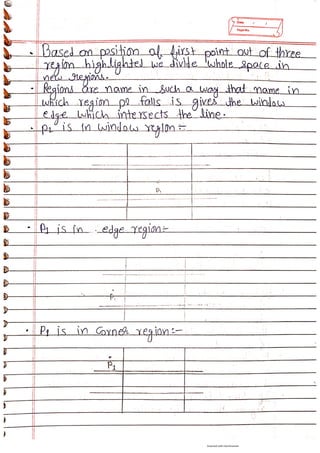 Date / /
• Based on position of first point out of three
region highlighted we divide whole space in
new regions.
• Regions are name in such a way that name in
which region p2 falls is gives the window
edge which intersects the line.
• P1 is in window region :-
P1
• P1 is in edge region:-
P1
• P1 is in Corner region:-
P1